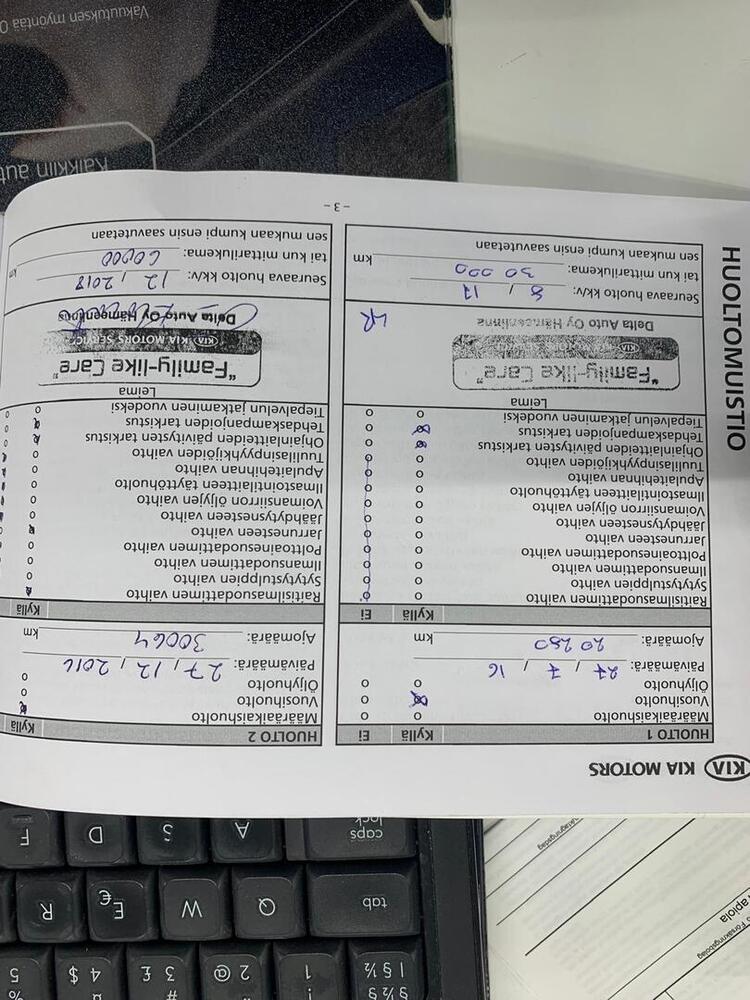 KIA KIA MOTORS
HUOLTOMUISTIO
HUOLTO 1 Kyllä Ei
Määräaikaishuolto
Vuosihuolto
Öljyhuolto
Päivämäärä: 27 / 7 / 16
Ajomäärä: 20 280 km
Kyllä Ei
Raitisilmasuodattimen vaihto
Sytytystulppien vaihto
Ilmansuodattimen vaihto
Polttoainesuodattimen vaihto
Jarrunesteen vaihto
Jäähdytysnesteen vaihto
Voimansiirron öljyjen vaihto
Ilmastointilaitteen täyttöhuolto
Apulaitehihnan vaihto
Tuulilasinpyyhkijöiden vaihto
Ohjainlaitteiden päivitysten tarkistus
Tehdaskampanjoiden tarkistus
Tiepalvelun jatkaminen vuodeksi
Leima
"Family-like Care"
KIA
Delta Auto Oy Hämeenlinna
Seuraava huolto kk/v: 8 / 17
tai kun mittarilukema: 30 000 km
sen mukaan kumpi ensin saavutetaan
HUOLTO 2 Kyllä
Määräaikaishuolto
Vuosihuolto
Öljyhuolto
Päivämäärä: 27 / 12 / 2016
Ajomäärä: 30064 km
Kyllä
Raitisilmasuodattimen vaihto
Sytytystulppien vaihto
Ilmansuodattimen vaihto
Polttoainesuodattimen vaihto
Jarrunesteen vaihto
Jäähdytysnesteen vaihto
Voimansiirron öljyjen vaihto
Ilmastointilaitteen täyttöhuolto
Apulaitehihnan vaihto
Tuulilasinpyyhkijöiden vaihto
Ohjainlaitteiden päivitysten tarkistus
Tehdaskampanjoiden tarkistus
Tiepalvelun jatkaminen vuodeksi
Leima
"Family-like Care"
KIA KIA MOTORS SERVICE
Delta Auto Oy
Seuraava huolto kk/v: 12 / 2018
tai kun mittarilukema: 60000 km
sen mukaan kumpi ensin saavutetaan
- 3 -
Kaikkiin aut
Vakuutuksen myöntää
§ ½ § ! 1 2 @ # 3 £ ¤ 4 $ % 5
tab Q W E € R
caps lock A S D F